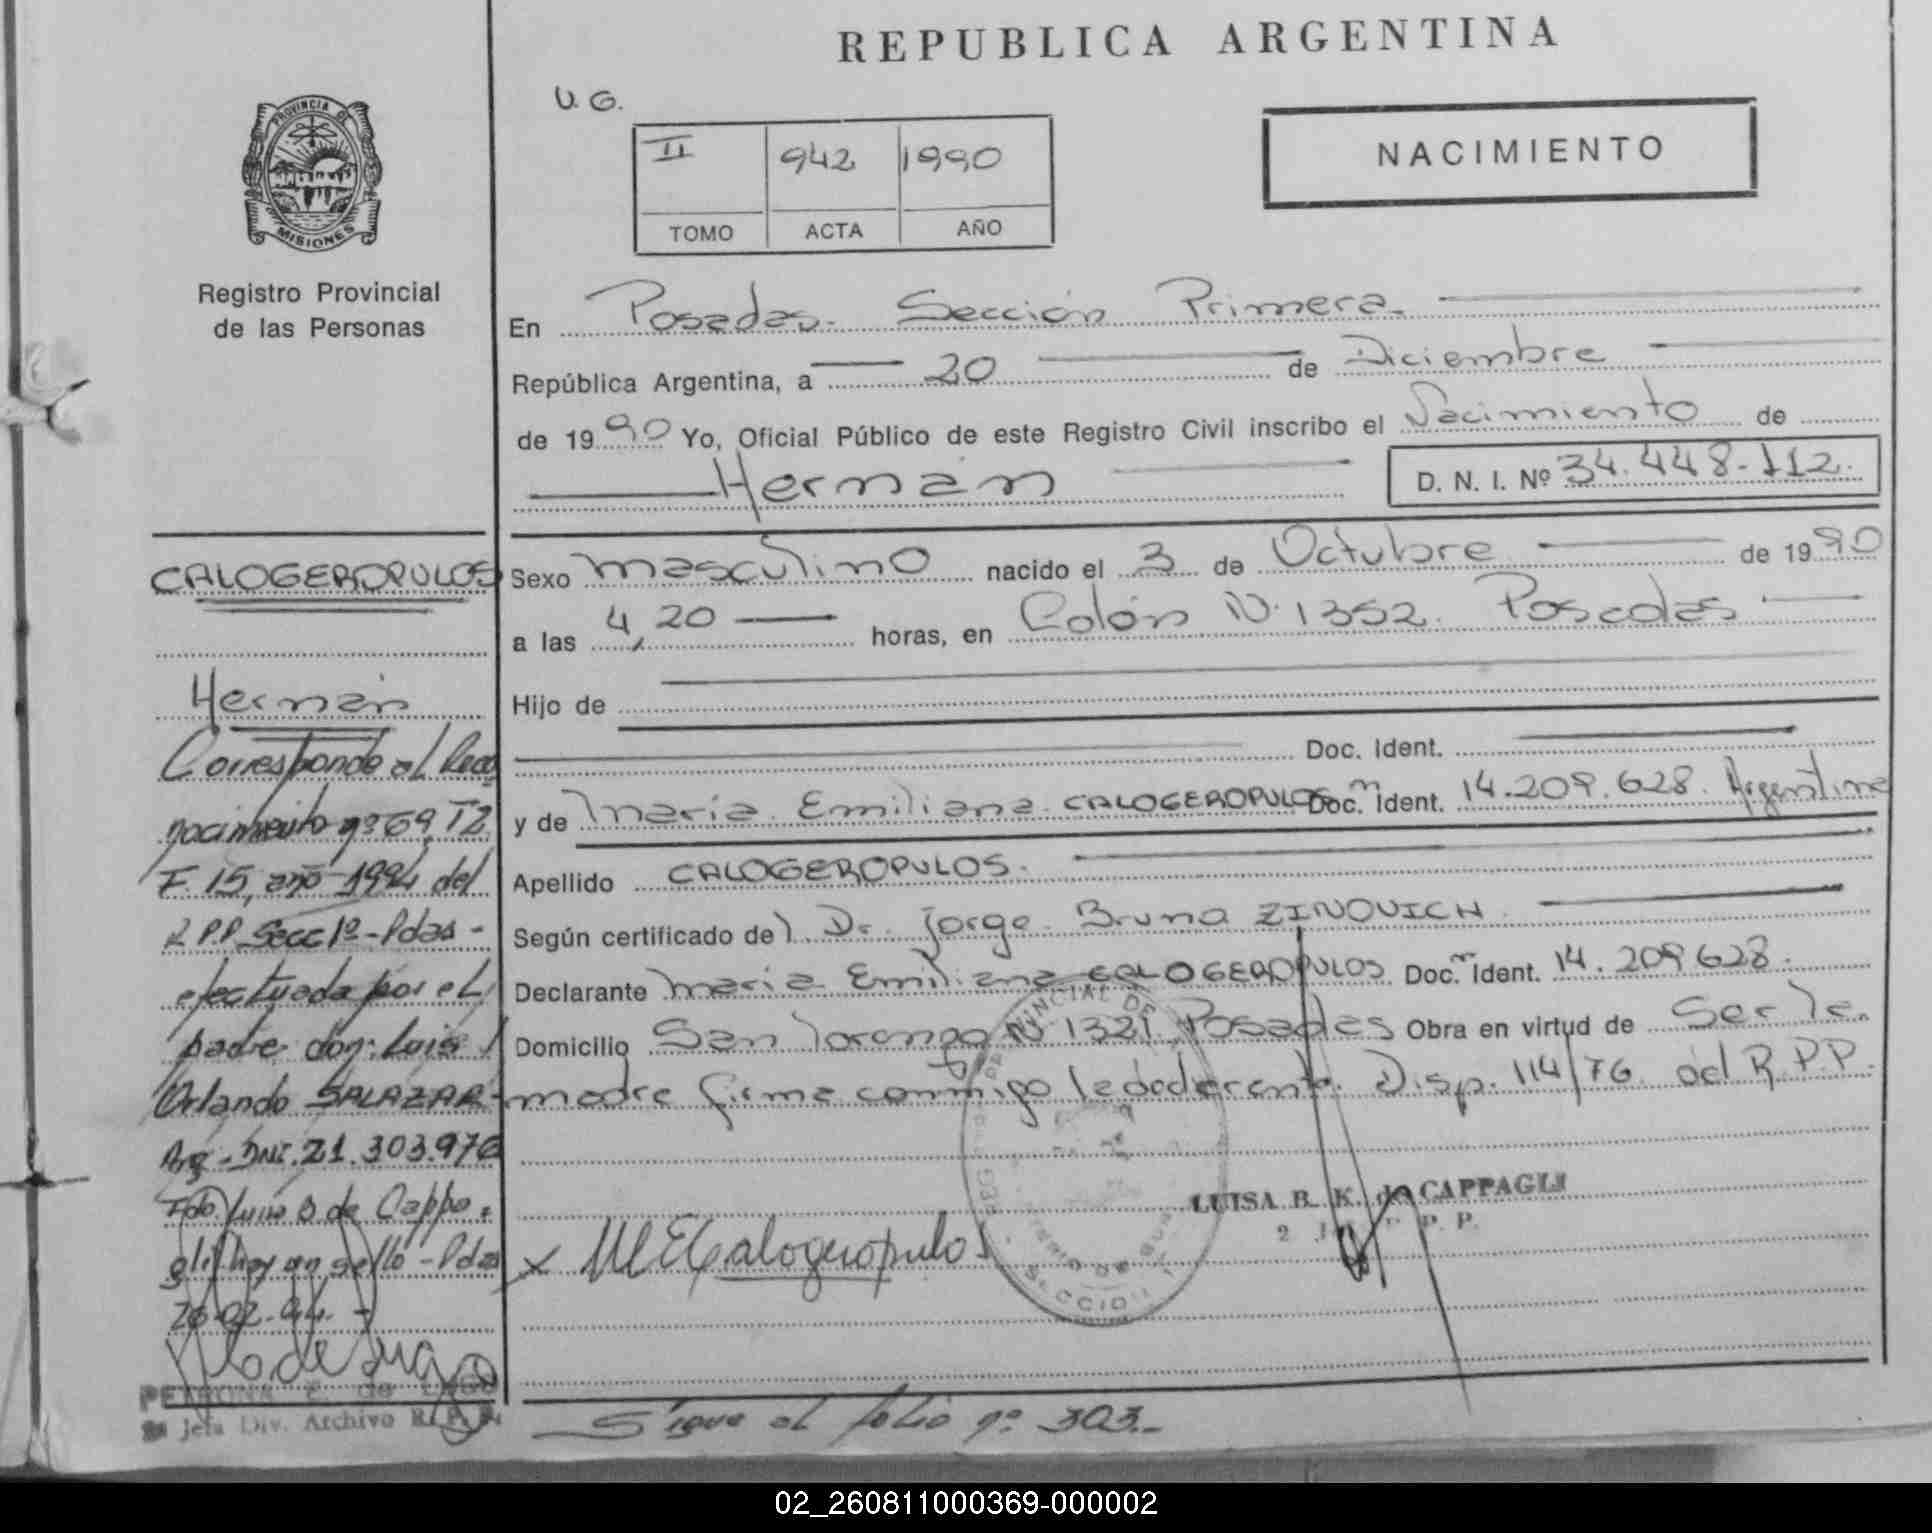 REPUBLICA ARGENTINA
U. G.
PROVINCIA DE
MISIONES
II 942 1990
TOMO ACTA AÑO
NACIMIENTO
Registro Provincial
de las Personas
En Posadas. Sección Primera.
República Argentina, a 20 de Diciembre
de 1990 Yo, Oficial Público de este Registro Civil inscribo el Nacimiento de
Hernán D. N. I. Nº 34.448.112.
CALOGEROPULOS
Hernán
Corresponde al Reco
nocimiento nº 69, T2
F. 15, año 1994 del
R.P.P. Secc 1º - Pdas -
efectuada por el
padre don: Luis
Orlando SALAZAR -
Arg - DNI. 21.303.976
Fdo. Luisa B de Cappa
gli hay un sello - Pdas
26-02-94. -
Sexo masculino nacido el 3 de Octubre de 1990
a las 4,20 horas, en Colón N· 1352. Posadas
Hijo de
Doc. Ident.
y de María Emiliana CALOGEROPULOS Doc. Ident. 14.209.628. Argentina
Apellido CALOGEROPULOS.
Según certificado del Dr. Jorge Bruno ZINOVICH
Declarante María Emiliana CALOGEROPULOS Doc. Ident. 14.209.628.
Domicilio San Lorenzo N· 1321. Posadas Obra en virtud de Ser la
madre firma conmigo la declarante. Disp. 114/76 del R.P.P.
LUISA B. K. de CAPPAGLI
x M E Calogeropulos
SECCION
Jefa Div. Archivo R. P. P.
Sigue al folio nº 303.-
02_260811000369-000002